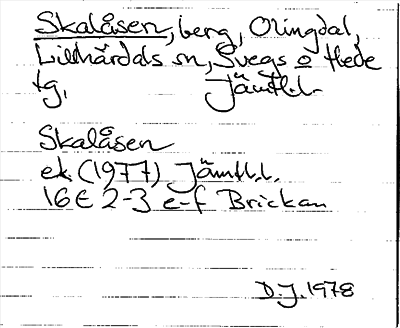 Skalåsen, berg, Olingdal,
Lillhärdals sn, Svegs o Hede
tg. Jämtl.l.
Skalåsen
ek. (1977) Jämtl.l.
16E 2-3 e-f Brickan
D.J. 1978